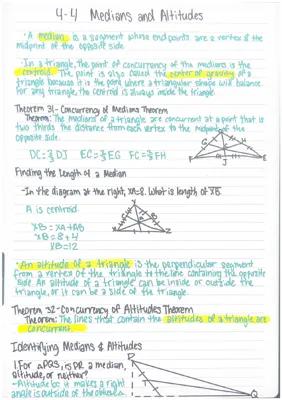 4-4 Medians and Altitudes
·A median is a segment whose endpoints are a vertex & the
midpoint of the opposite side.
·In a triangle, the point of concurrency of the medians is the
centroid. The point is also called the center of gravity of a
triangle because it is the point where a triangular shape will balance.
For any triangle, the centroid is always inside the triangle.
Theorem 31- Concurrency of Medians Theorem
Theorem: The medians of a triangle are concurrent at a point that is
two thirds the distance from each vertex to the midpoint of the
opposite side.
DC=⅔DJ EC=⅔EG FC=⅔FH
Finding the Length of a Median
-In the diagram at the right, XA=8. What is length of XB.
A is centroid.
XB=XA+AB
XB=8+4
XB=12
·An altitude of a triangle is the perpendicular segment
from a vertex of the triangle to the line containing the opposite
side. An altitude of a triangle can be inside or outside the
triangle, or it can be a side of the triangle.
Theorem 32-Concurrency of Altitudes Theorem
Theorem: The lines that contain the altitudes of a triangle are
concurrent.
Identifying Medians & Altitudes
1. For △PQS, is PR a median,
altitude, or neither?
-Altitude bc it makes a right
angle is outside of the